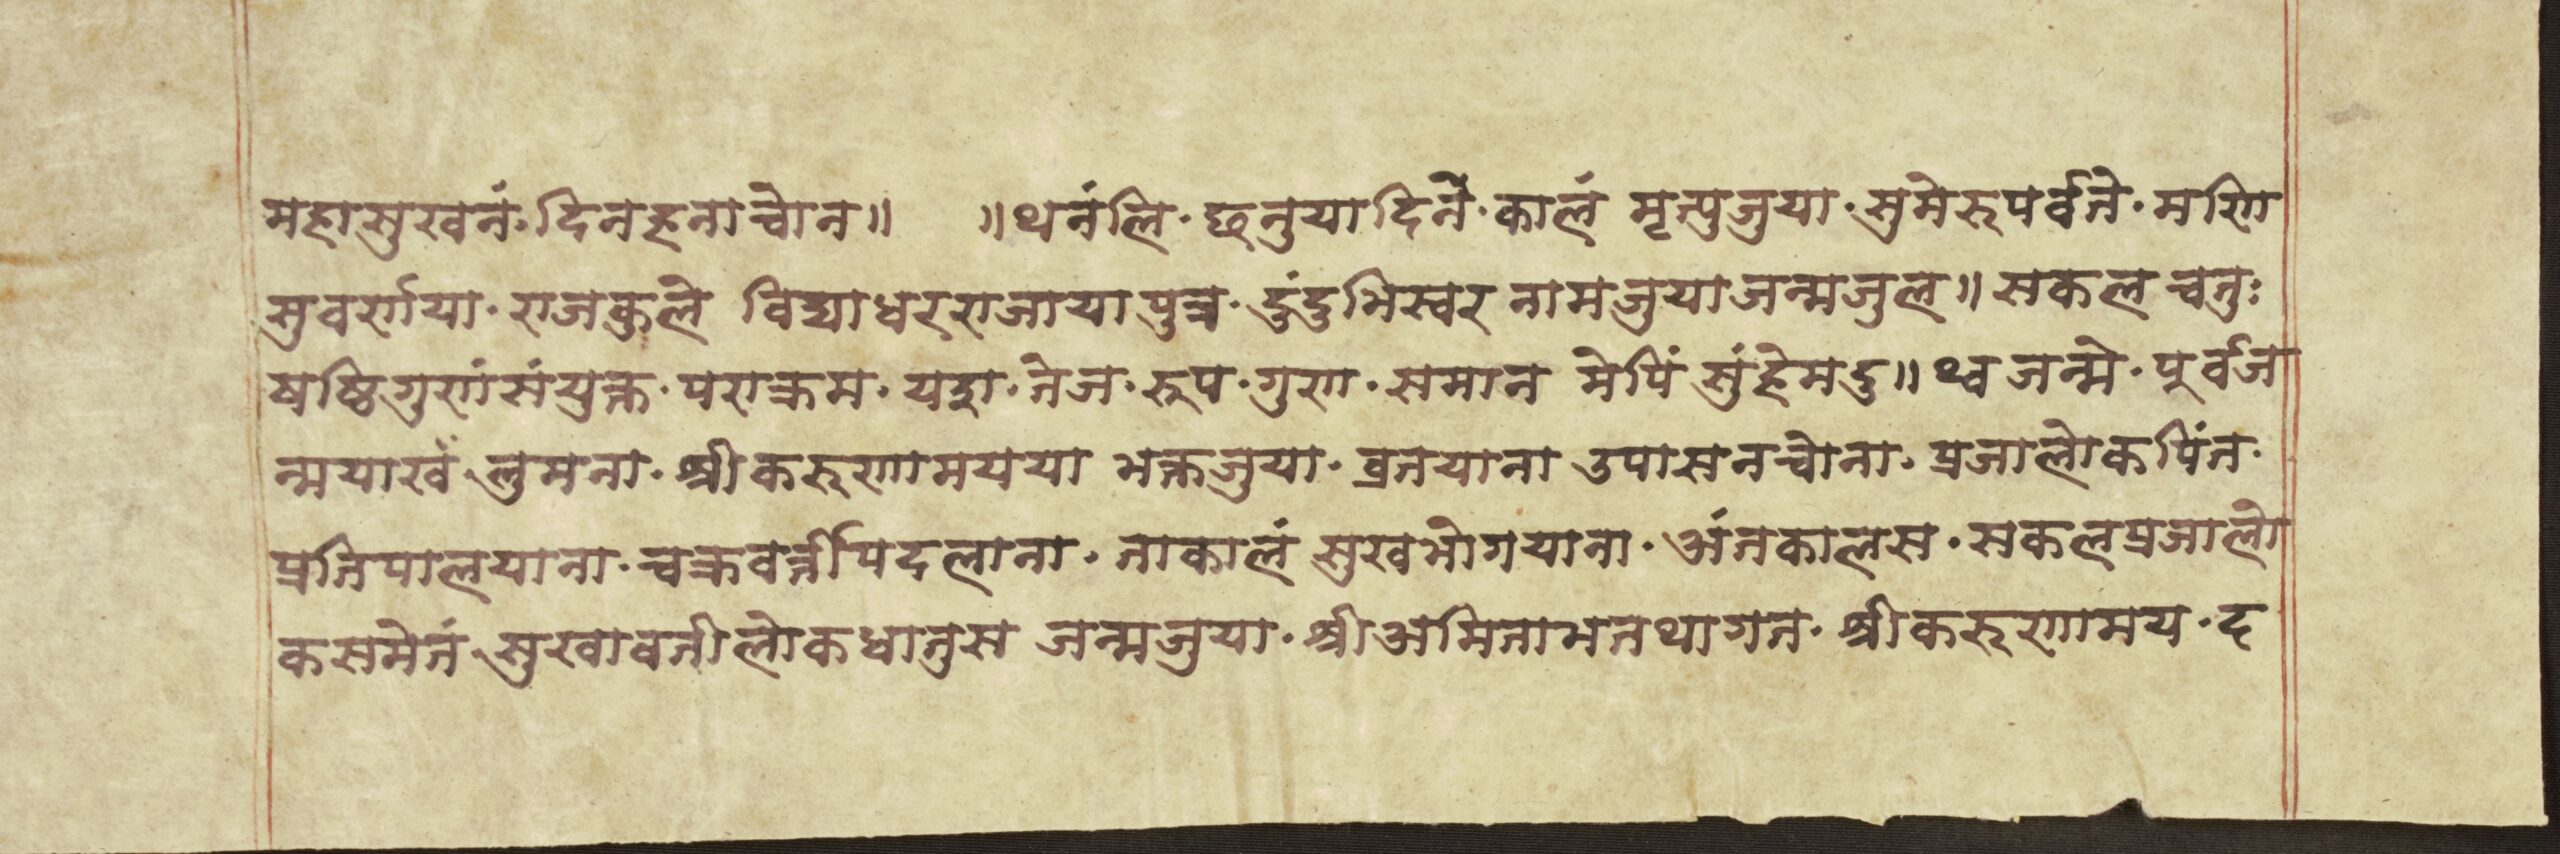 महासुखनं·दिनहनाचोन॥ ॥थनंलि·छन्हुयादिनॆ·कालं मृत्युजुया·सुमेरुपर्वते·मणि
सुवर्णया·राजकुले विद्याधरराजायापुत्र·दुंदुभिस्वर नामजुयाजन्मजुल॥सकल चतुः
षष्ठिगुणंसंयुक्त·पराक्रम·यश·तेज·रूप·गुण·समान मेपिं सुंहेमदु॥थ्व जन्मे·पूर्वज
न्मयाखँ लुमना·श्रीकरुणामयया भक्तजुया·व्रतयाना उपासनचोना·प्रजालोकपिंत·
प्रतिपालयाना·चक्रवर्त्तीपदलाना·ताकालं सुखभोगयाना·अंतकालस·सकलप्रजालो
कसमेतं·सुखावतीलोकधातुस जन्मजुया·श्रीअमिताभतथागत·श्रीकरुणामय·द